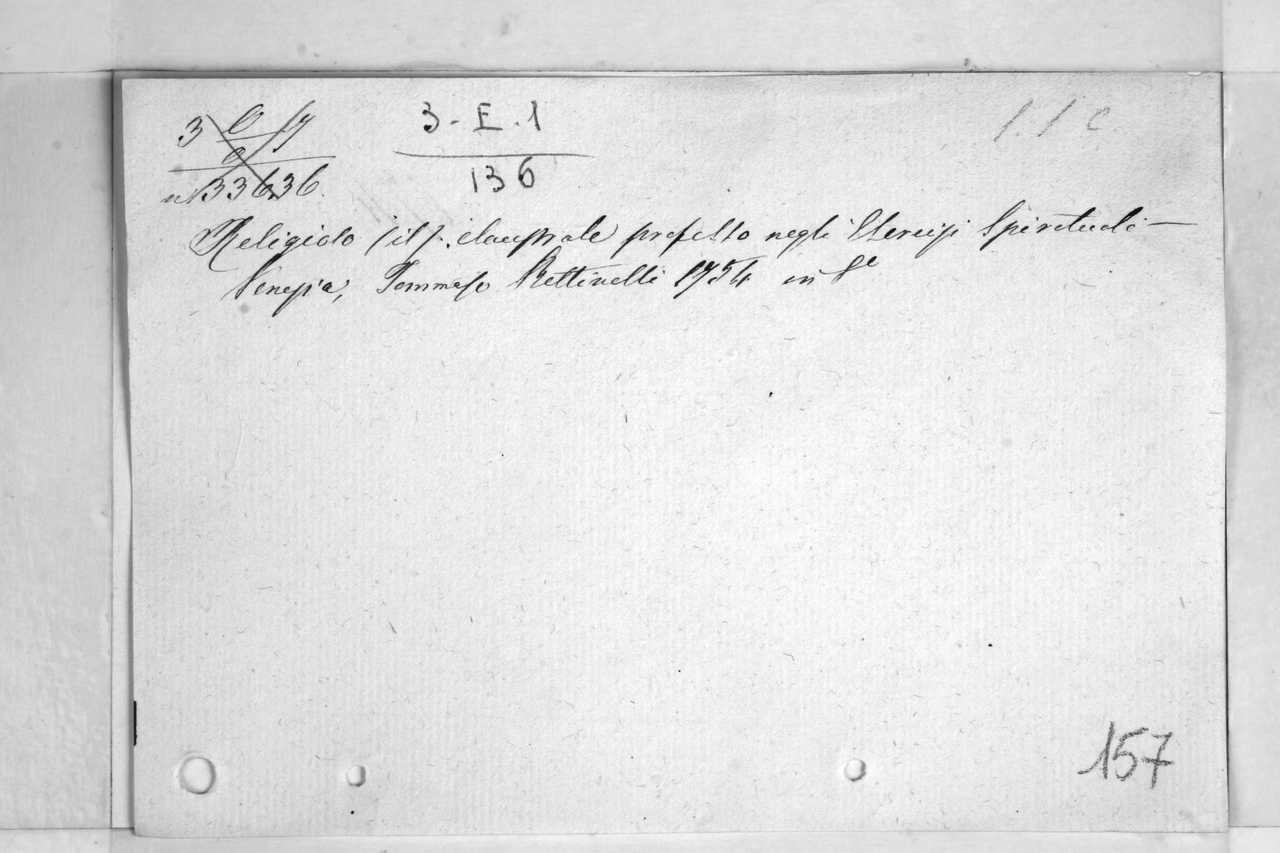 3 - E. 1
136
Religioso (il). claustrale profesto negli Esercizi Spirituali —
Venezia, Tommaso Bettinelli 1754 in 8°
157